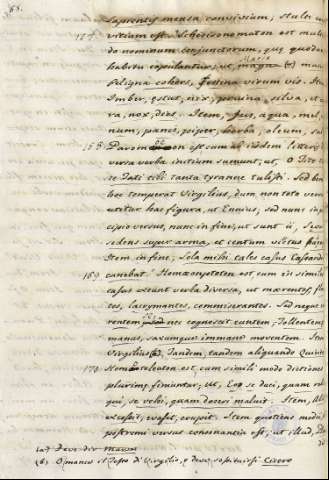 68.
sapientis mensa convivium, stulti
vitium est. Schesisonomaton est multi-
do nominum conjunctorum, quæ quodam
habitu copulantur, ut, magna (a) Maria
Peligna cohors, Festina virum vis. Item
Imber, æstus, nix, pruina, silva, et au-
ra, nox, dies. Item, Jus, aqua, mel,
num, panis, piper, herba, oleum, sal.
155 est cum ab iisdem litteris
versa verba initium sumunt, ut, O Tite
te Tati tibi tanta tyranne tulisti. Sed
hæc temperat Virgilius, dum non toto versu
utitur hac figura, ut Ennius, sed nunc in
cipio versus, nunc in fine, ut sunt ii, Sæva
sedens super arma, et centum vinctus
Item in fine, Sola mihi tales casus Cassandra
canebat. Homœoptoton est cum in similes
casus exeunt verba diversa, ut mærentes, flentes,
lacrymantes, commiserantes. Sed neque
rentem nec cognoscit euntem, Tollentem
manus, saxumque immane moventem. Item
Virgilius (b) Tandem, tandem aliquando Quirites
170 Homœoteleuton est cum simili modo dictiones
plurimæ finiuntur, ut, Eos reduci, quam
qui, se velhi, quam deseri maluit. Item, Abiit,
excessit, evasit, erupit. Item quotiens media
postremi versus consonantia est, ut illud,
(a) Deve dir Marsa
(b) Cicero